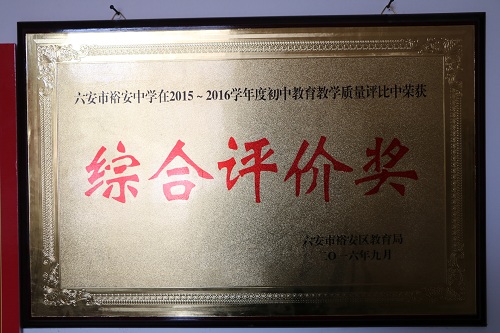 六安市裕安中学在2015～2016学年度初中教育教学质量评比中荣获
综合评价奖
六安市裕安区教育局
二〇一六年九月